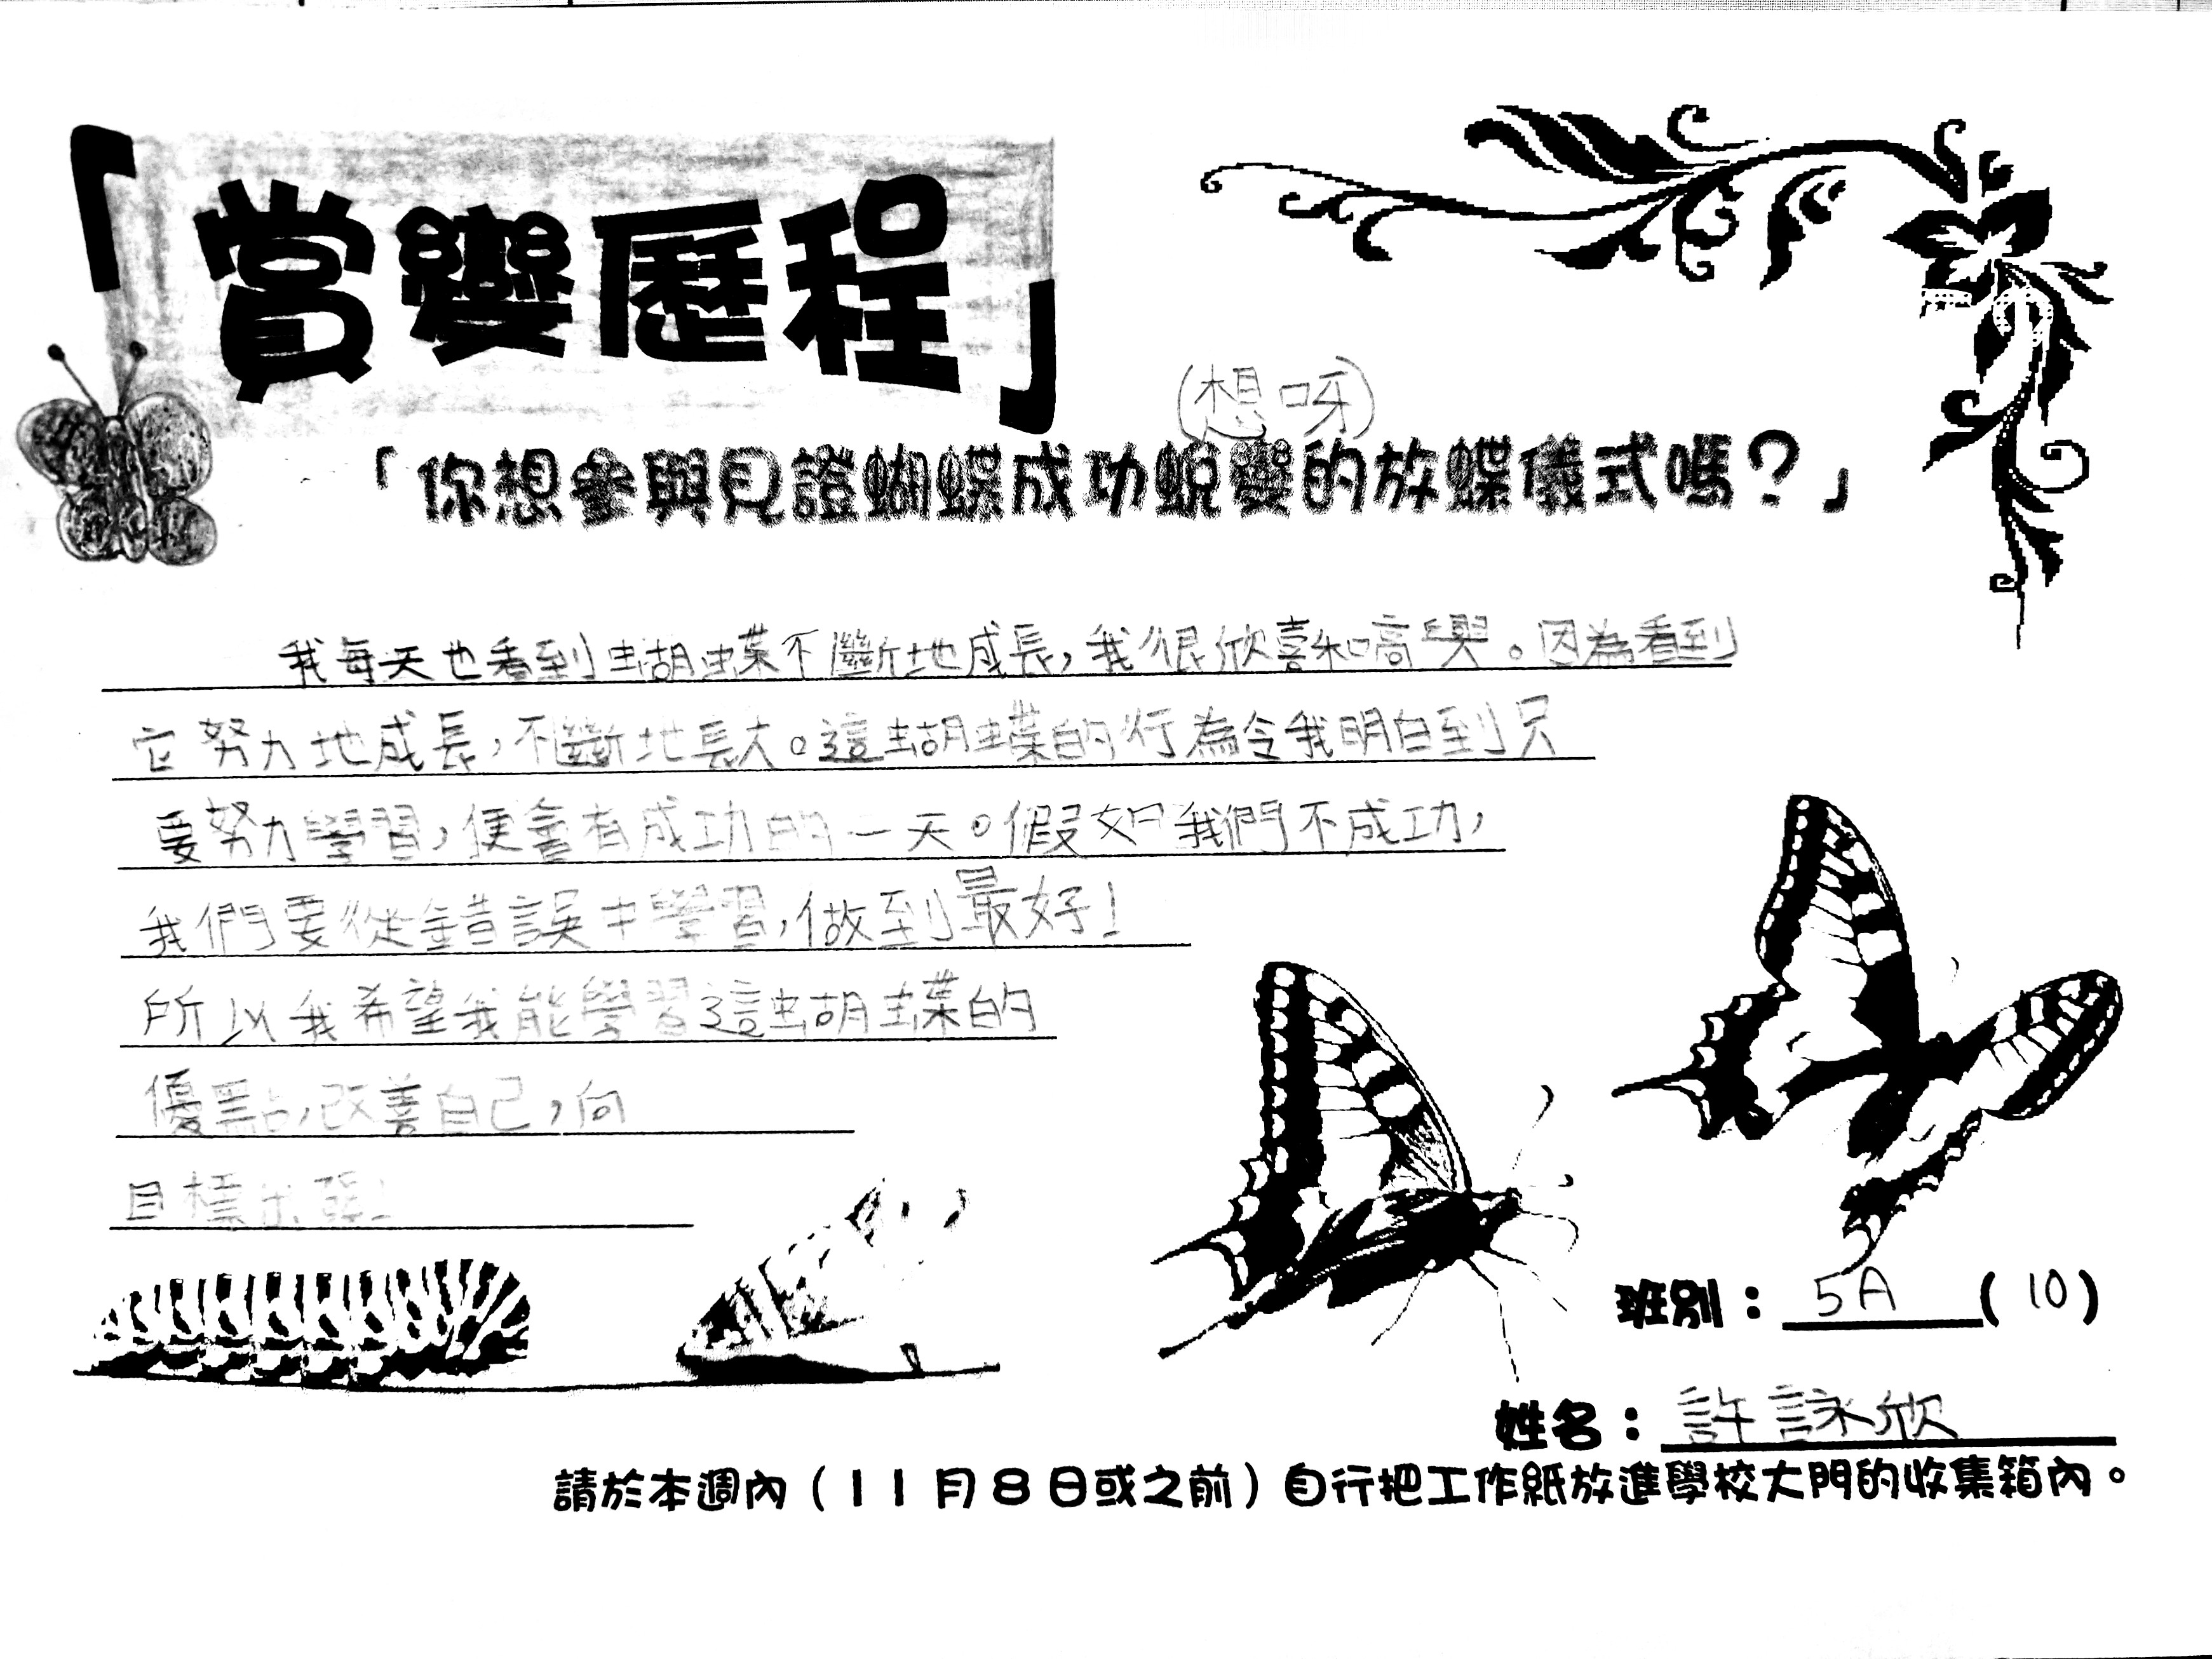 「賞變歷程」
(想呀)
「你想參與見證蝴蝶成功蛻變的放蝶儀式嗎？」
我每天也看到蝴蝶不斷地成長，我很欣喜和高興。因為看到
它努力地成長，不斷地長大。這蝴蝶的行為令我明白到只
要努力學習，便會有成功的一天。假如我們不成功，
我們要從錯誤中學習，做到最好！
所以我希望我能學習這蝴蝶的
優點，改善自己，向
目標出發！
班別：5A (10)
姓名：許詠欣
請於本週內（11月8日或之前）自行把工作紙放進學校大門的收集箱內。